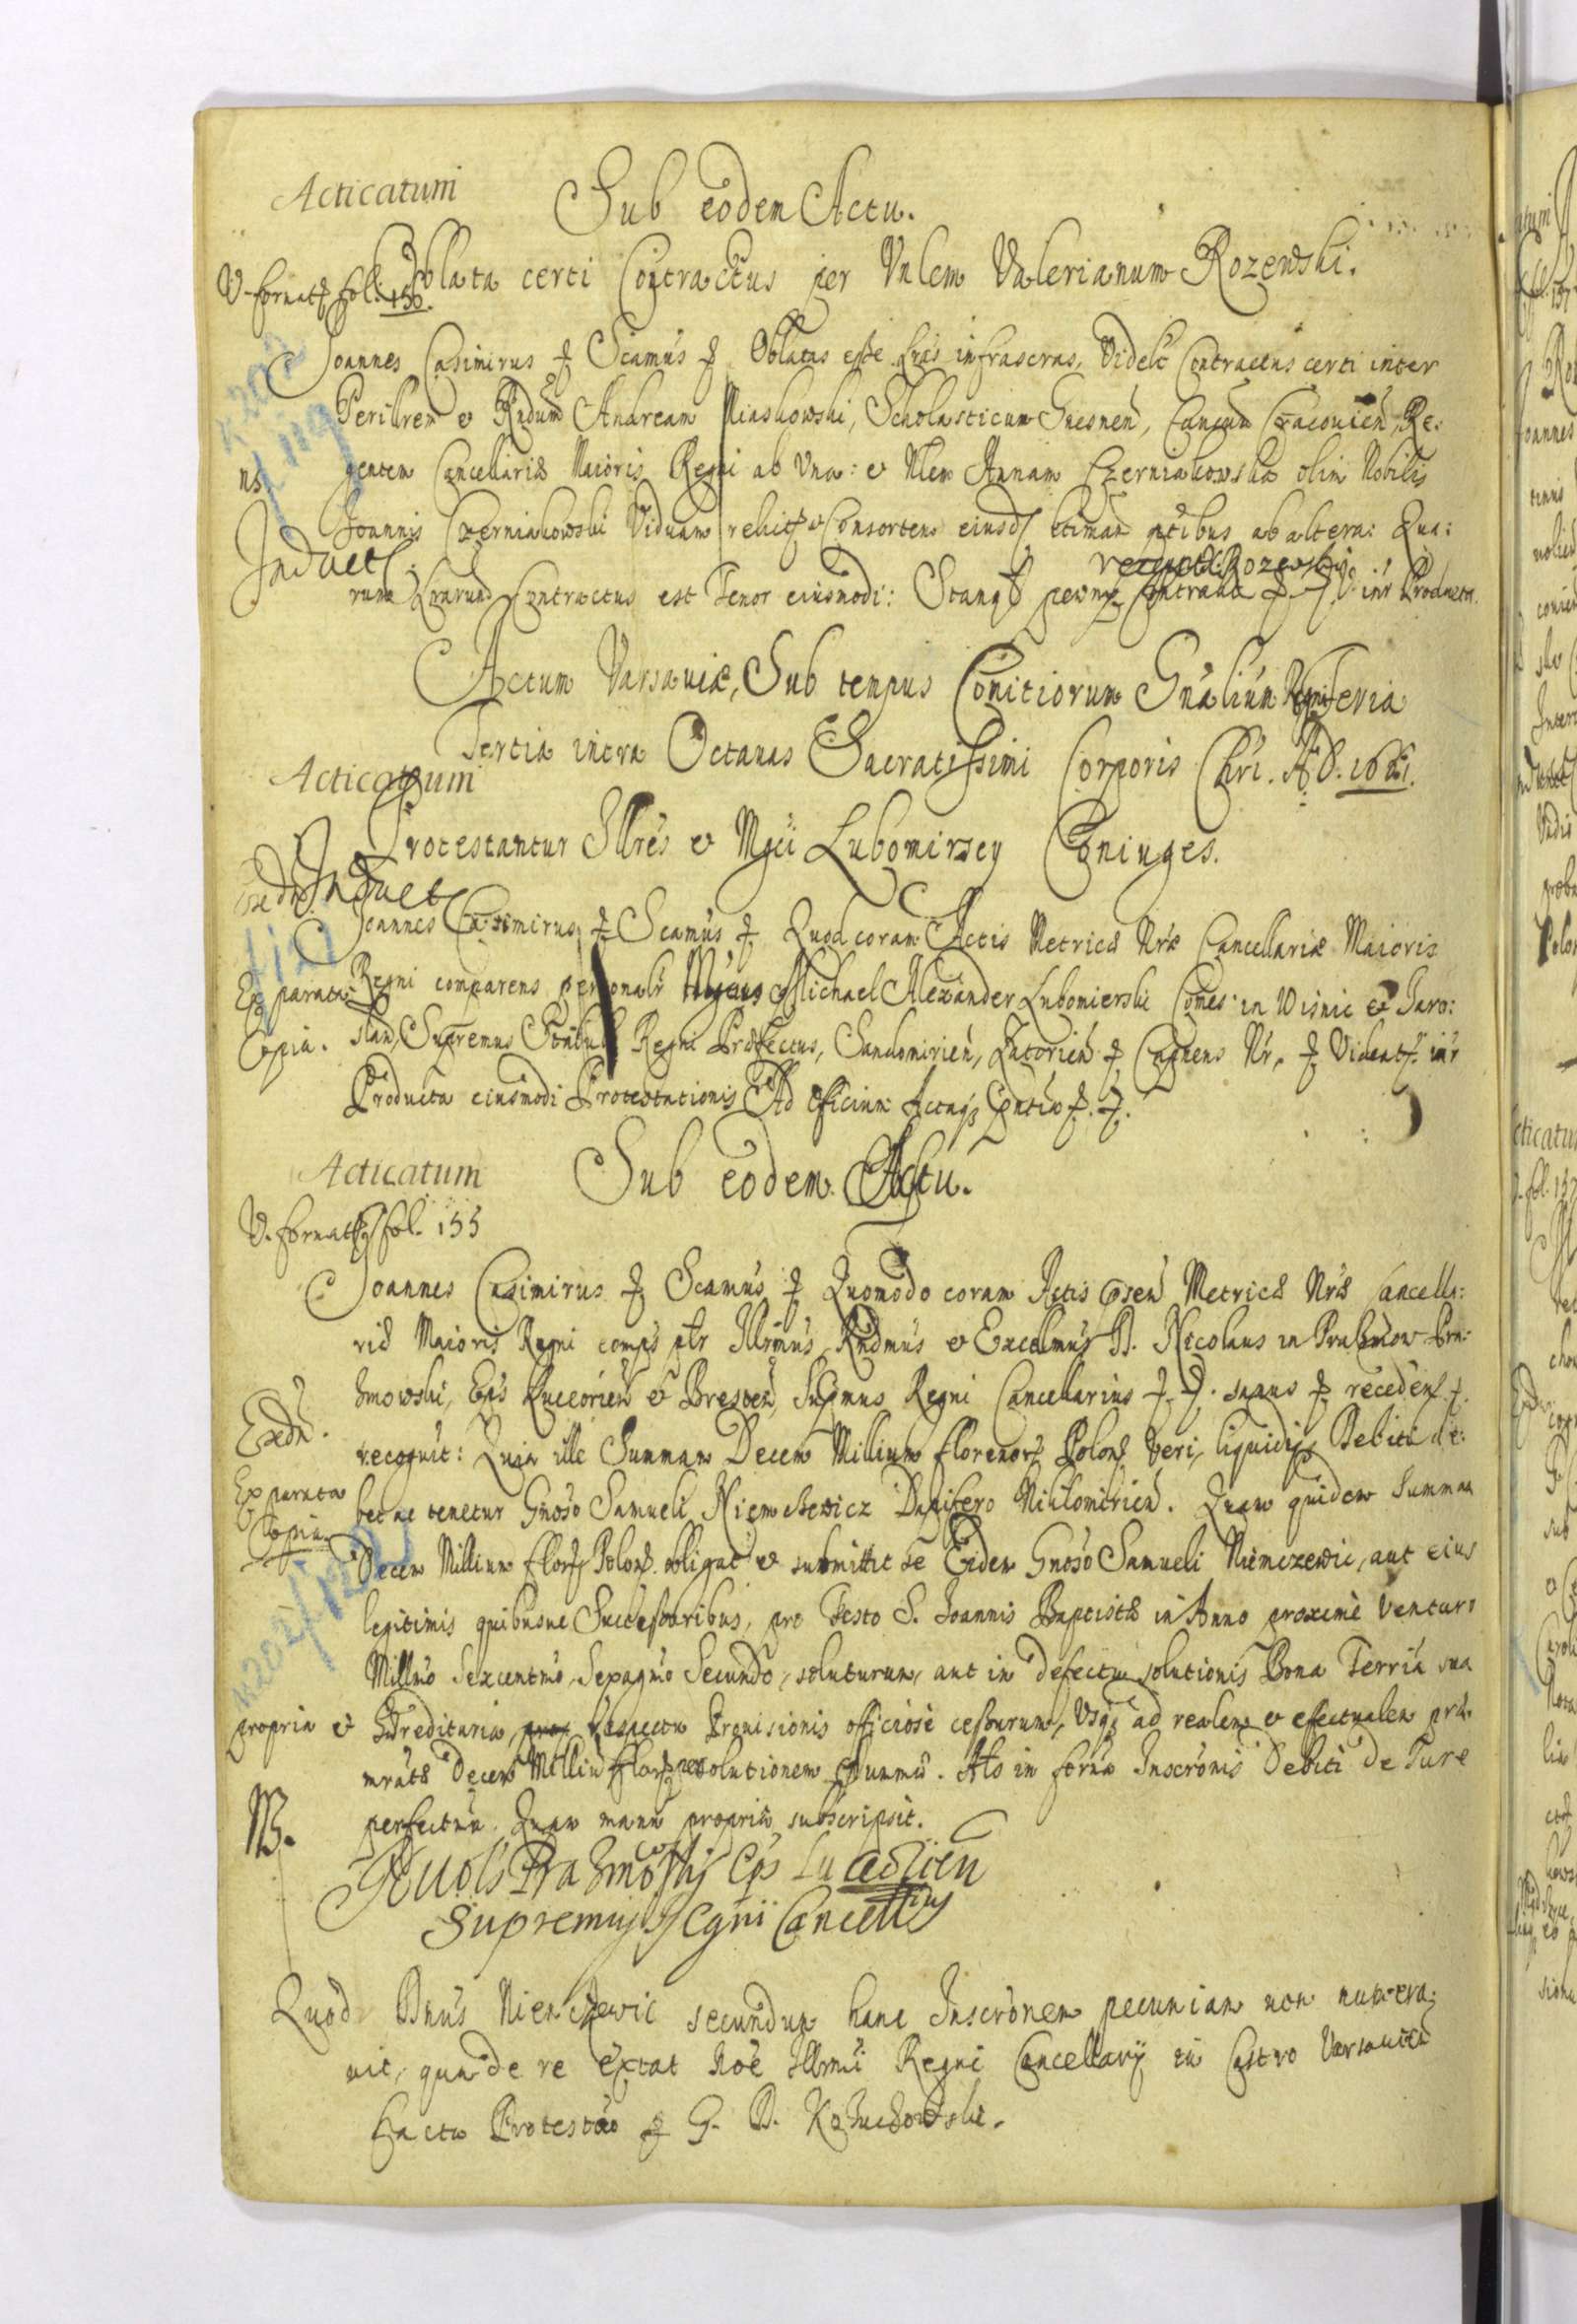 Acticatum
Sub eodem Actu.
V. format fol. 150.
Oblata certi Contractus per Vnlem Valerianum Rozewski.
Joannes Casimirus Scamus Oblatas esse Lras infrascras, Videlt Contractus certi inter
Perillrem et Rndum Andream Miaskowski, Scholasticum Gnesnen, Cancum Cracouien, Re:
gentem Cancellariæ Maioris Regni ab Vna: et Nlem Annam Czerniakowska olim Nobilis
Joannis Czerniakowski Viduam relict Consortem eiusd ptibus ab altera: Qua:
Induct.
rum Lrarum Contractus est Tenor eiusmodi: Stanął pewny Contrakt inr Producta.
Actum Varsauiæ, Sub tempus Comitiorum Gnalium Regni Feria
Tertia intra Octauas Sacratissimi Corporis Chri. AD. 1661.
Acticatum
Protestantur Illres et Mgci Lubomirscy Coniuges.
Induct
Joannes Casimirus Scamus Quod coram Actis Metrices Nræ Cancellariæ Maioris
Ex parata
Regni comparens personalr Mgcus Michael Alexander Lubomierski Comes in Wisnic et Jaro:
Copia.
slau, Supremus Stabuli Regni Præfectus, Sandomirien, Capneus Nr. Vident inr
Producta eiusmodi Protestationis Ad Officium Actaq
Acticatum
Sub eodem Actu.
V. format fol. 155
Joannes Casimirus Scamus Quomodo coram Actis psen Metrices Nræ Cancella:
riæ Maioris Regni comps plr Illrmus Rndmus et Excellmus D. Nicolaus in Prażmow Pra:
żmowski, Eps Luceorien et Bresten, Supmus Regni Cancellarius sanus recedens
Exdn.
recognit: Quia ille Summam Decem Millium florenor Polon veri, liquidiq Debiti de:
Ex parata
bet ac tenetur Gnoso Samueli Niemczewicz Dapifero Nihlomirien. Quam quidem Summam
Copia
Decem Millium flor Polon. obligat et submittit se Eidem Gnoso Samueli Niemczewic, aut eius
legitimis quibusue Successoribus, pro Festo S. Joannis Baptistæ in Anno proximè venturo
Millmo Sexcentmo, Sexagmo Secundo, soluturum, aut in defectu solutionis Bona Terria sua
propria et Hæreditaria, respectu Prouisionis officiosè cessurum, Vsq ad realem et efectualem præ:
mratæ Decem Milliu flor solutionem Summæ. Als in forma Inscronis Debiti de Jure
NB.
perfectam. Quam manu propria subscripsit.
Nicols Prażmowskij Eps Luceorien
Supremus Regni Cancellrius
Quod Dnus Niemczewic secundum hanc Inscronem pecuniam non numera:
uit, qua de re extat noe Illrmi Regni Cancellarij in Castro Varsauien
facta Protestao G. D. Kożuchowski.